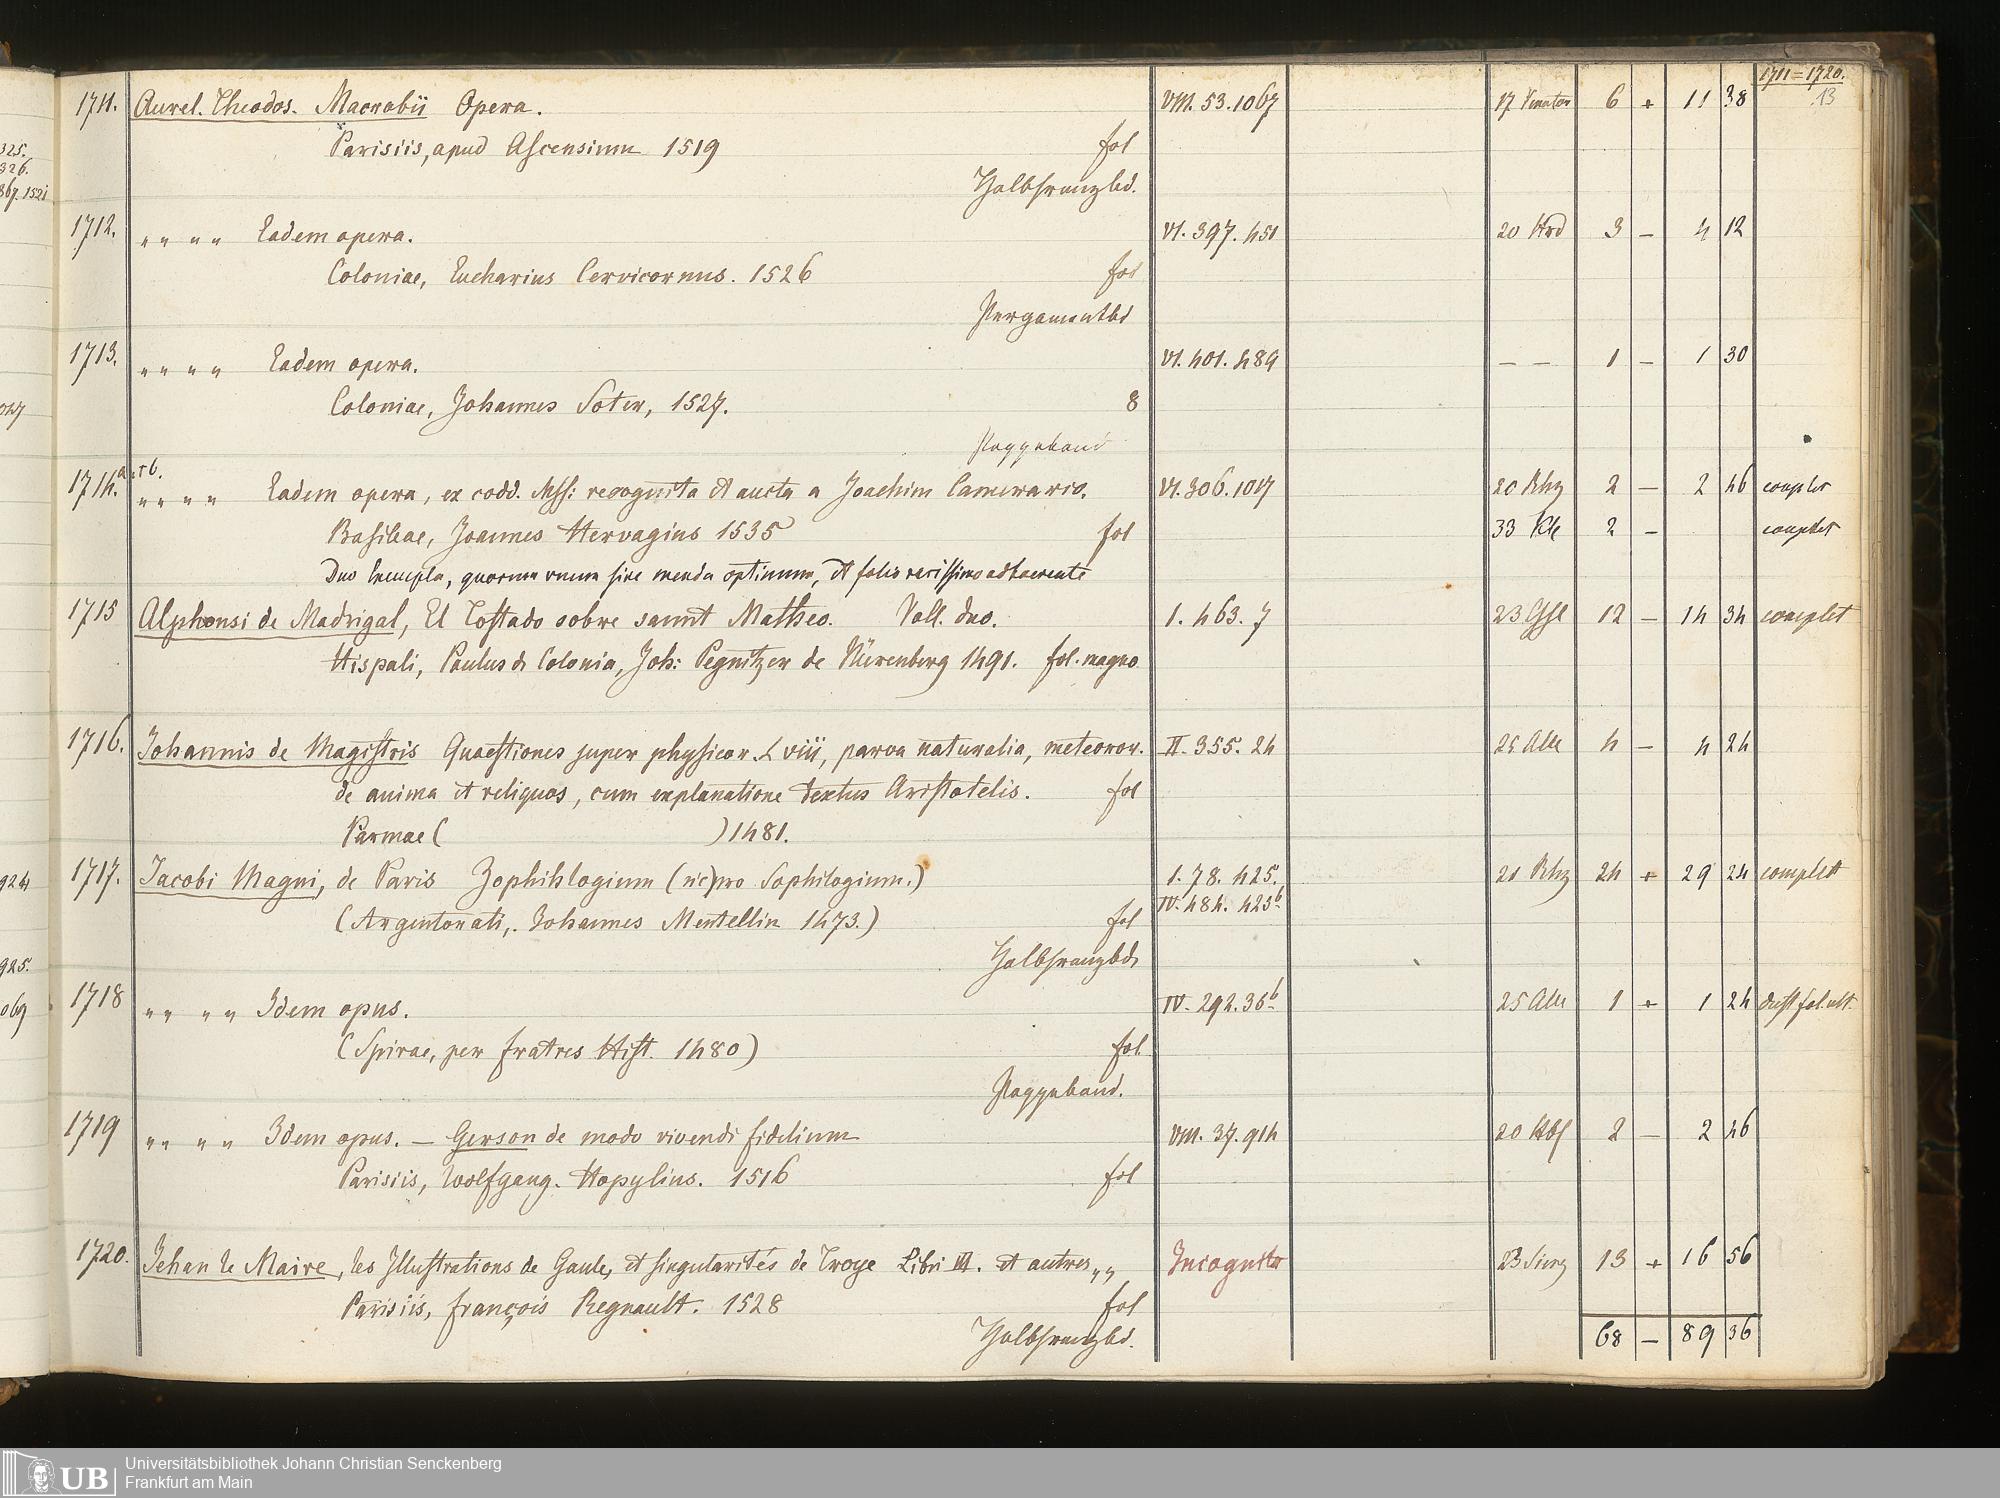 1711=1720.
13
1711. Aurel. Theodos. Macrobii Opera. VIII. 53. 1067 17 6 + 11 38
Parisiis, apud Ascensium 1519 fol
Halbfranzbd.
1712. " " " " Eadem opera. VI. 397. 451 20 3 – 4 12
Coloniae, Eucharius Cervicornus. 1526 fol
Pergamentbd
1713. " " " " Eadem opera. VI. 401. 489 — — 1 – 1 30
Coloniae, Johannes Soter, 1527. 8
Pappeband
1714. a + b. " " " " Eadem opera, ex codd. Mss: recognita et aucta a Joachim Camerario. VI. 306. 1017 20 Rhz 2 – 2 46 complet
Basileae, Joannes Hervagius 1535 fol 33 2 – complet
Duo Exempla, quorum unum sine menda optimum, et folio rarissimo adhaerente
1715 Alphonsi de Madrigal, El Tostado sobre sannt Matheo. Voll. duo. I. 463. 7 23 12 – 14 34 complet
Hispali, Paulus de Colonia, Joh: Pegnitzer de Nürenberg 1491. fol. magno
1716. Johannis de Magistris Quaestiones super physicor. L viii, parva naturalia, meteoror. II. 355. 24 25 4 – 4 24
de anima et reliquas, cum explanatione textus Aristotelis. fol
Parmae ( ) 1481.
1717. Jacobi Magni, de Paris Zophihlogium (sic) pro Sophilogium.) I. 78. 425. 21 Rhz 24 + 29 24 complett
IV. 484. 425b.
(Argentorati, Johannes Mentellin 1473.) fol
Halbfranzbd
1718 " " " " Idem opus. IV. 292. 36b 25 1 + 1 24 fol. ult.
(Spirae, per fratres Hist. 1480) fol
Pappeband.
1719 " " " " Idem opus. — Gerson de modo vivendi fidelium VIII. 37. 914 20 2 – 2 46
Parisiis, Wolfgang. Hopylius. 1516 fol
1720. Jehan le Maire, les Illustrations de Gaule, et singularités de Troye Libri III. et autres " " Incognito 23 13 + 16 56
Parisiis, François Regnault. 1528 fol
Halbfranzbd.
68 – 89 36
325.
326.
867. 1521
924
925.
UB
Universitätsbibliothek Johann Christian Senckenberg
Frankfurt am Main